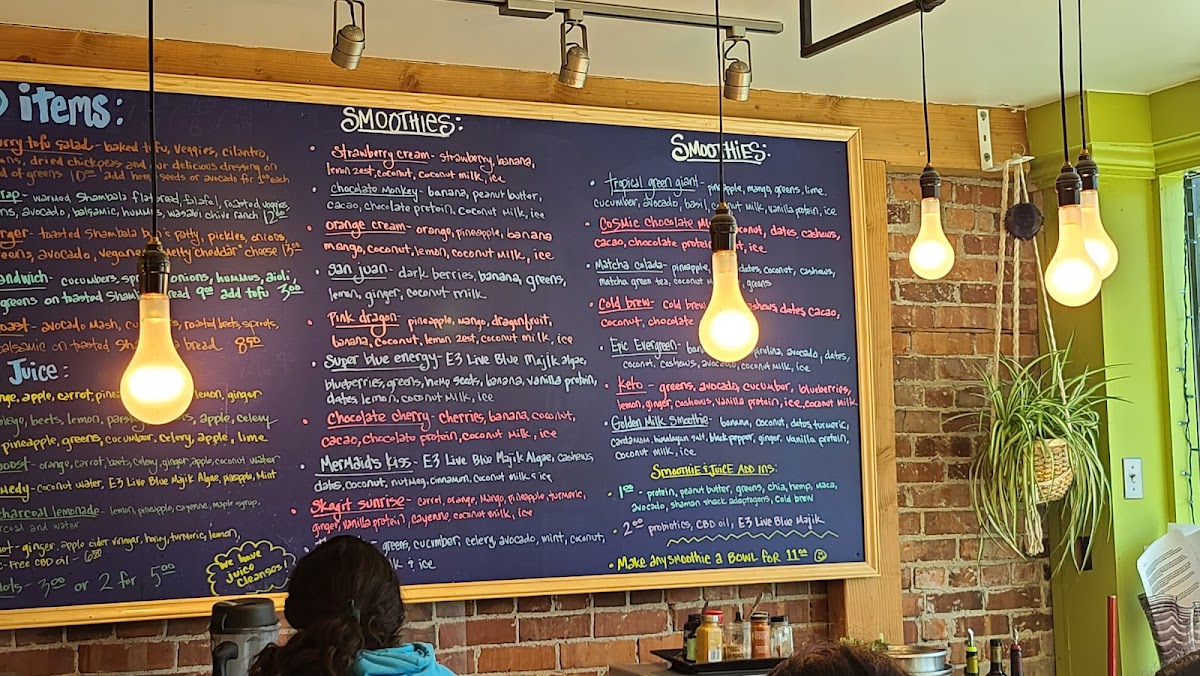 items:
rry tofu salad - baked tofu, veggies, cilantro,
ons, dried chickpeas and our delicious dressing on
d of greens 10.00 add hemp seeds or avocado for 1.00 each
rap - warmed Shambala flatbread, falafel, roasted veggies,
ns, avocado, balsamic, hummus, wasabi chive ranch
rger - toasted Shambala bun, patty, pickles, onions,
reens, avocado, vegan melty cheddar cheese 13.00
andwich - cucumbers, spr onions, hummus, aioli,
greens on toasted Sham read 9.00 add tofu 3.00
oast - avocado mash, cu s, roasted beets, sprouts,
balsamic on toasted Sha a bread 8.50
Juice:
nge, apple, carrot, pine lemon, ginger
beets, lemon, pars is, apple, celery
pineapple, greens, cucumber, celery, apple, lime
oost - orange, carrot, beets, celery, ginger, apple, coconut water
medy - coconut water, E3 Live Blue Majik Algae, pineapple, Mint
harcoal lemonade - lemon, pineapple, cayenne, maple syrup,
rcoal and water
hot - ginger, apple cider vinegar, honey, turmeric, lemon,
C-Free CBD oil - 6.00
hots - 3.00 or 2 for 5.00
We have
Juice
cleanses!
Smoothies:
• Strawberry cream - strawberry, banana,
lemon zest, coconut, coconut milk, ice
• chocolate Monkey - banana, peanut butter,
cacao, chocolate protein, coconut milk, ice
• orange cream - orange, pineapple, banana
mango, coconut, lemon, coconut milk, ice
• san juan - dark berries, banana, greens,
lemon, ginger, coconut milk
• Pink dragon - pineapple, mango, dragonfruit,
banana, coconut, lemon zest, coconut milk, ice
• Super blue energy - E3 Live Blue Majik algae,
blueberries, greens, hemp seeds, banana, vanilla protein,
dates, lemon, coconut milk, ice
• Chocolate cherry - cherries, banana, coconut,
cacao, chocolate protein, coconut milk, ice
• Mermaid's kiss - E3 Live Blue Majik Algae, cashews,
dates, coconut, nutmeg, cinnamon, coconut milk & ice
Skagit sunrise - carrot, orange, mango, pineapple, turmeric,
ginger, vanilla protein, cayenne, coconut milk, ice
- greens, cucumber, celery, avocado, mint, coconut,
milk & ice
Smoothies:
• Tropical green giant - pineapple, mango, greens, lime,
cucumber, avocado, basil, coconut milk, vanilla protein, ice
• Cosmic Chocolate M conut, dates, cashews,
cacao, chocolate protein nut, ice
• Matcha colada - pineapple, dates, coconut, cashews,
matcha green tea, coconut greens
• Cold brew - cold brew cashews dates cacao,
coconut, chocolate
• Epic Evergreen - ban spirulina, avocado, dates,
coconut, cashews, avocado, coconut milk, ice
• Keto - greens, avocado, cucumber, blueberries,
lemon, ginger, cashews, vanilla protein, ice, coconut milk
• Golden Milk Smoothie - banana, coconut, dates, turmeric,
cardamom, himalayan salt, black pepper, ginger, vanilla protein,
coconut milk, ice
Smoothie & Juice Add ins:
• 1.00 - protein, peanut butter, greens, chia, hemp, maca,
avocado, shaman shack adaptogens, cold brew
• 2.00 probiotics, CBD oil, E3 Live Blue Majik
• Make any smoothie a bowl for 11.00